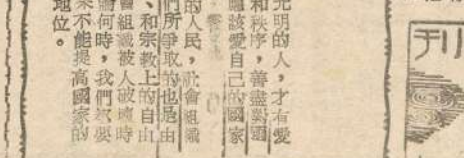 刊
光明的人，才有愛
和秩序，善盡對國
應該愛自己的國家
的人民，社會組織
們所爭取的也是由
、和宗教上的自由
會組織被人破壞時
論何時，我們都要
來不能提高國家的
地位。